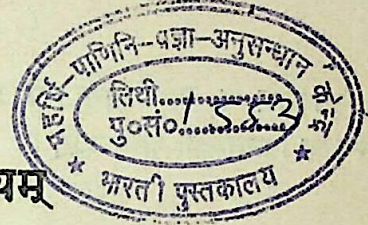 महर्षि-पाणिनि-प्रज्ञा-अनुसन्धान केन्द्र
तिथी..............
पु०सं०..1553
* भारती पुस्तकालय *
यम्